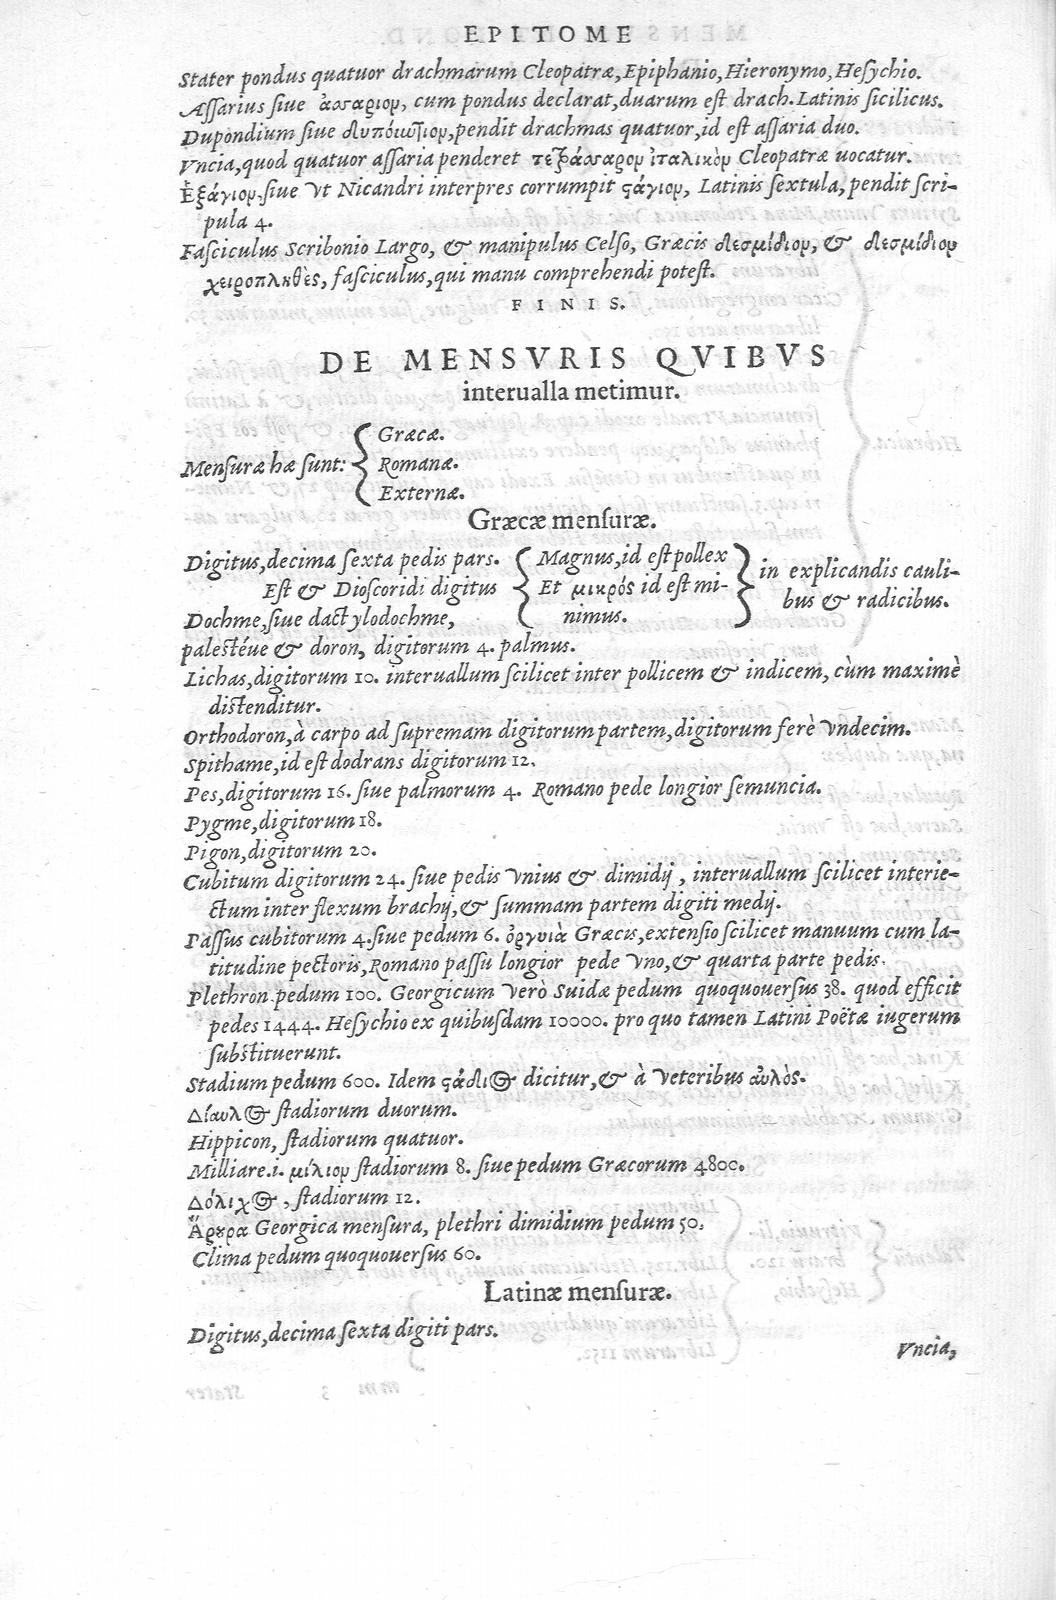 EPITOME
Stater pondus quatuor drachmarum Cleopatræ, Epiphanio, Hieronymo, Heſychio.
Aſſarius ſiue ἀσσαριον, cum pondus declarat, duarum eſt drach. Latinis ſicilicus.
Dupondium ſiue pendit drachmas quatuor, id eſt aſſaria duo.
Vncia, quod quatuor aſſaria penderet τεῤάσσαρον ἰταλικὸν Cleopatræ uocatur.
Ἑξάγιον, ſiue vt Nicandri interpres corrumpit ϛάγιον, Latinis ſextula, pendit ſcri-
pula 4.
Faſciculus Scribonio Largo, & manipulus Celſo, Græcis δεσμίδιον, & δεσμίδιον
χειροπληθὲς, faſciculus, qui manu comprehendi poteſt.
FINIS.
DE MENSVRIS QVIBVS
interualla metimur.
Menſuræ hæ ſunt: { Græcæ.
Romanæ.
Externæ.
Græcæ menſuræ.
Digitus, decima ſexta pedis pars. { Magnus, id eſt pollex } in explicandis cauli-
Eſt & Dioſcoridi digitus Et μικρός id eſt mi- bus & radicibus.
Dochme, ſiue dactylodochme, nimus.
paleſtéue & doron, digitorum 4. palmus.
Lichas, digitorum 10. interuallum ſcilicet inter pollicem & indicem, cùm maximè
diſtenditur.
Orthodoron, à carpo ad ſupremam digitorum partem, digitorum ferè vndecim.
Spithame, id eſt dodrans digitorum 12.
Pes, digitorum 16. ſiue palmorum 4. Romano pede longior ſemuncia.
Pygme, digitorum 18.
Pigon, digitorum 20.
Cubitum digitorum 24. ſiue pedis vnius & dimidij, interuallum ſcilicet interie-
ctum inter flexum brachij, & ſummam partem digiti medij.
Paſſus cubitorum 4. ſiue pedum 6. ὀργυιὰ Græcis, extenſio ſcilicet manuum cum la-
titudine pectoris, Romano paſſu longior pede vno, & quarta parte pedis.
Plethron pedum 100. Georgicum verò Suidæ pedum quoquouerſus 38. quod efficit
pedes 1444. Heſychio ex quibuſdam 10000. pro quo tamen Latini Poëtæ iugerum
ſubſtituerunt.
Stadium pedum 600. Idem ϛάδιος dicitur, & à veteribus αὐλὸς.
Δίαυλος ſtadiorum duorum.
Hippicon, ſtadiorum quatuor.
Milliare .i. μίλιον ſtadiorum 8. ſiue pedum Græcorum 4800.
Δόλιχος, ſtadiorum 12.
Ἄρουρα Georgica menſura, plethri dimidium pedum 50.
Clima pedum quoquouerſus 60.
Latinæ menſuræ.
Digitus, decima ſexta digiti pars.
Vncia,